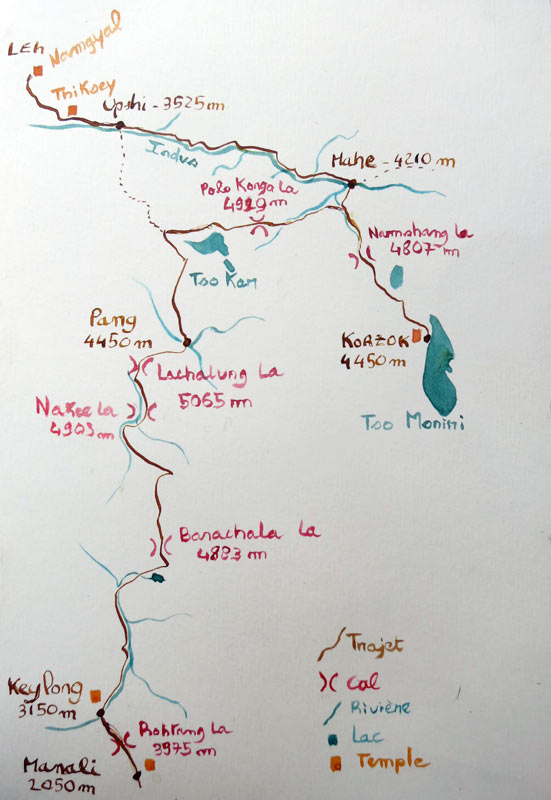 LEh
Namgyal
Thiksey
Upshi - 3525m
Indus
Mahe - 4210 m
Polo Konga La
4929 m
Namshang La
4807 m
Tso Kar
Pang
4450 m
KORZOK
4450 m
Lachalung La
5065 m
Nakee La
4903 m
Tso Moriri
Barachala La
4883 m
Trajet
Col
Rivière
Lac
Temple
Keylong
3150 m
Rohtang La
3975 m
Manali
2050 m